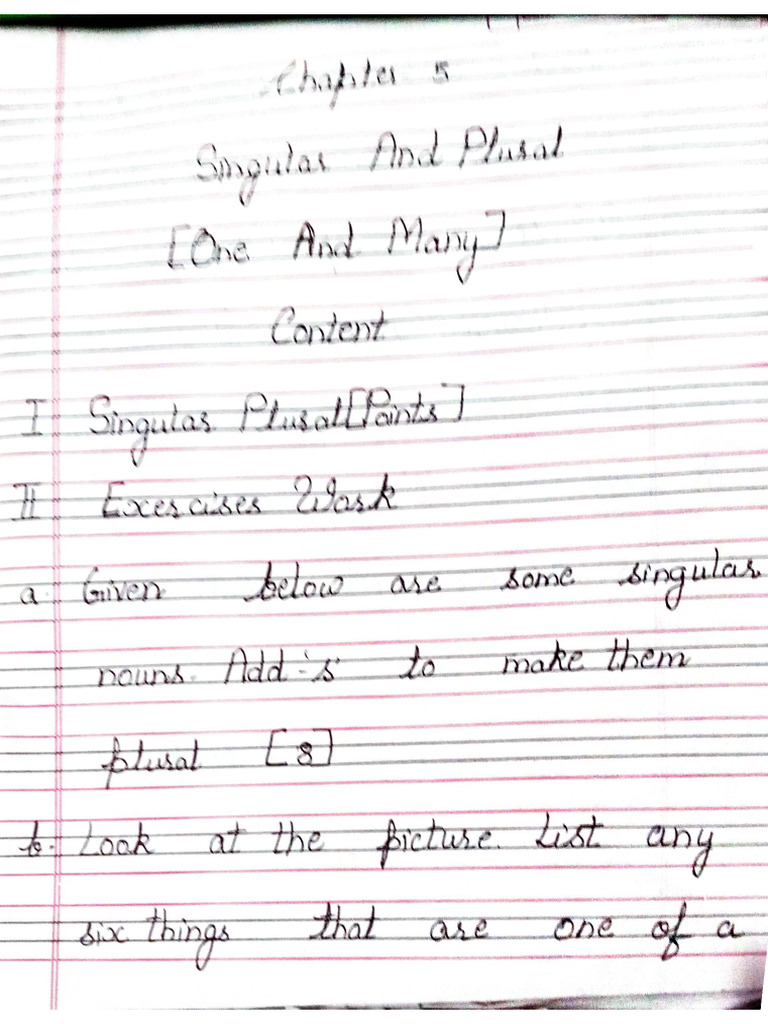 Chapter 5
Singular And Plural
[One And Many]
Content
I Singular Plural [Points]
II Excercises Work
a. Given below are some singular
nouns. Add -'s' to make them
plural [8]
b. Look at the picture. List any
six things that are one of a